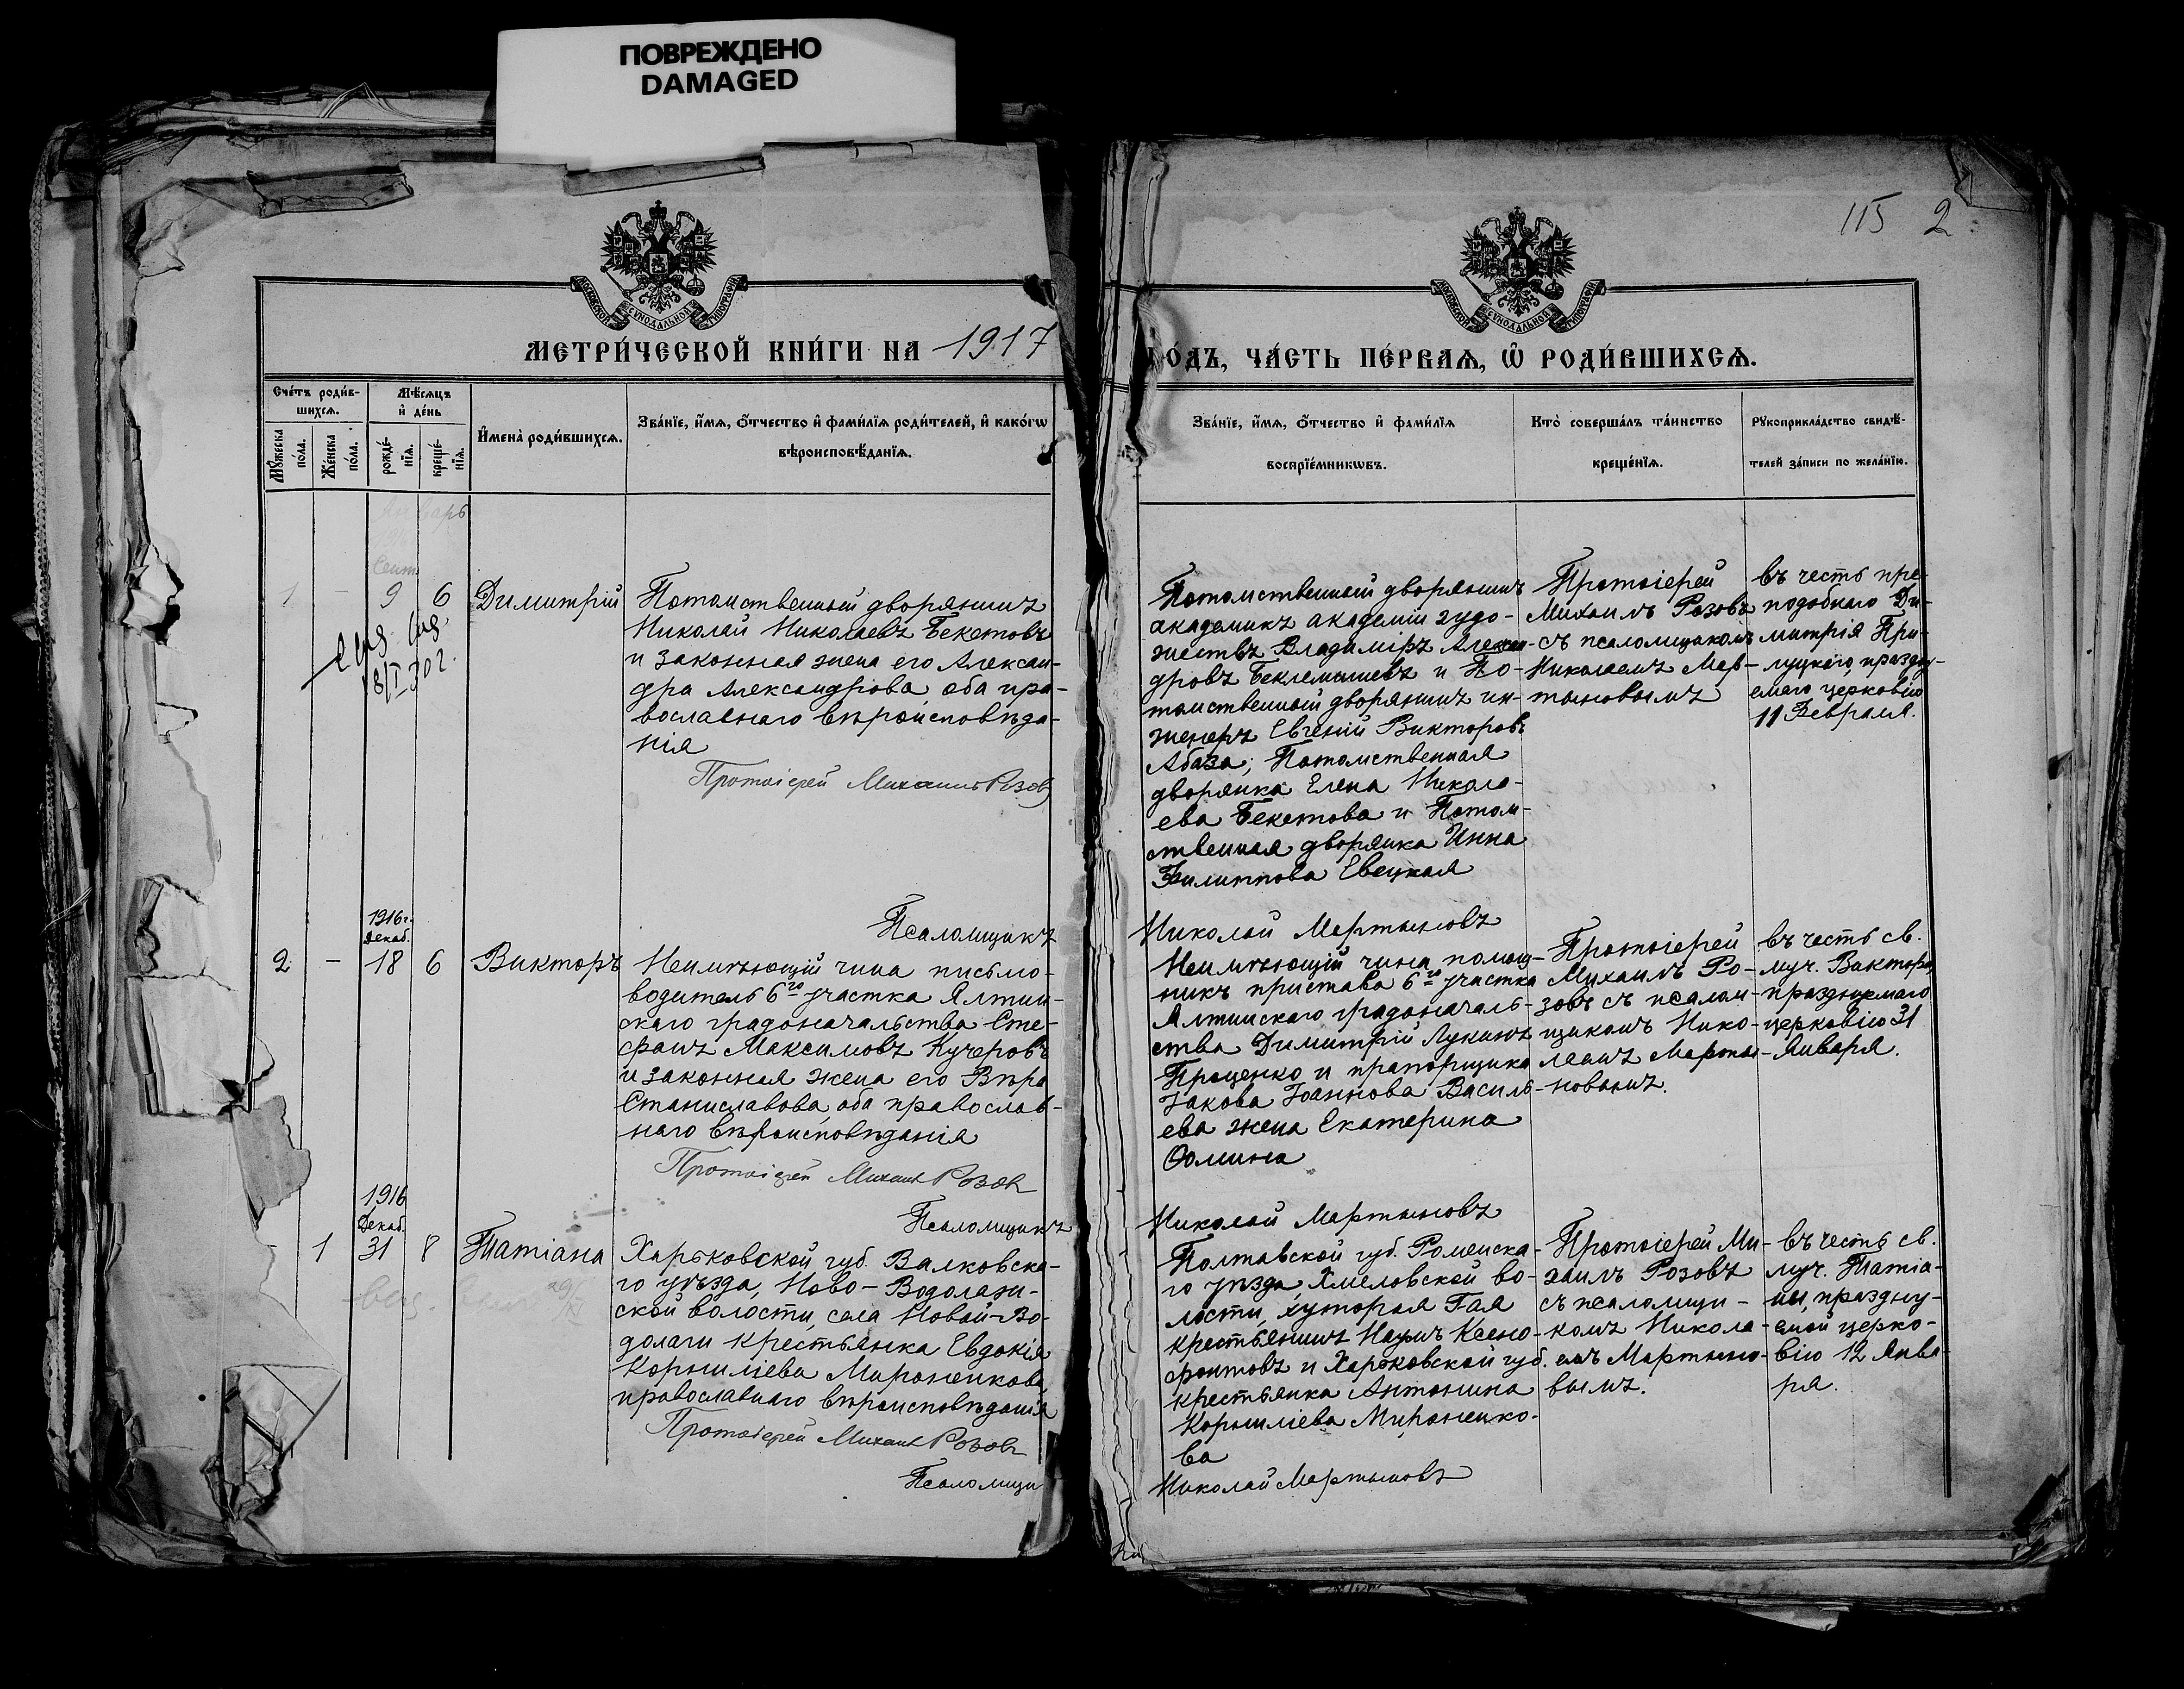 ПОВРЕЖДЕНО
DAMAGED
115 2
МОСКОВСКОЙ СѴНОДАЛЬНОЙ ТИПОГРАФІИ
МОСКОВСКОЙ СѴНОДАЛЬНОЙ ТИПОГРАФІИ
МЕТРИ́ЧЕСКОЙ КНИ́ГИ НА 1917
ГО́ДЪ, ЧА́СТЬ ПЕ́РВАѦ, Ѽ РОДИ́ВШИХСѦ.
Сче́тъ роди́в-
шихсѧ.
Мꙋ́жеска
по́ла.
Же́нска
по́ла.
Мѣ́сѧцъ
и҆ де́нь
рожде́-
нїѧ.
креще́-
нїѧ.
И҆мена̀ роди́вшихсѧ.
Зва́нїе, и҆́мѧ, ѻ҆́тчество и҆ фами́лїѧ роди́телей, и҆ како́гѡ
вѣроисповѣ́данїѧ.
Зва́нїе, и҆́мѧ, ѻ҆́тчество и҆ фами́лїѧ
воспрїе́мникѡвъ.
Кто̀ соверша́лъ та́инство
креще́нїѧ.
Рꙋкоприкла́дство свидѣ́-
телей за́писи по жела́нїю.
Январь
Сент.
1 - 9 6 Димитрій
18/I 302.
Потомственный дворянинъ
Николай Николаевъ Бекетовъ
и законная жена его Алексан-
дра Александрова оба пра-
вославнаго вѣроисповѣда-
нія
Протоіерей Михаилъ Розовъ
Псаломщикъ
Потомственный дворянинъ
академикъ академіи худо-
жествъ Владиміръ Алексан-
дровъ Беклемишевъ и По-
томственный дворянинъ ин-
женеръ Евгеній Викторовъ
Абаза; Потомственная
дворянка Елена Никола-
ева Бекетова и Потом-
ственная дворянка Инна
Филиппова Евецкая
Николай Мартыновъ
Протоіерей
Михаилъ Розовъ
съ псаломщикомъ
Николаемъ Мар-
тыновымъ
въ честь пре-
подобнаго Ди-
митрія При-
луцкаго, праздну-
емаго церковію
11 Февраля.
1916 г.
Декаб.
2 - 18 6 Викторъ
Неимѣющій чина письмо-
водитель 6го участка Ялтин-
скаго градоначальства Сте-
фанъ Максимовъ Кучеровъ
и законная жена его Вѣра
Станиславова, оба православ-
наго вѣроисповѣданія
Протоіерей Михаилъ Розовъ
Псаломщикъ
Неимѣющій чина помощ-
никъ пристава 6го участка
Ялтинскаго градоначаль-
ства Димитрій Лукинъ
Проценко и прапорщика
Іакова Іоаннова Василь-
ева жена Екатерина
Ѳомина
Николай Мартыновъ
Протоіерей
Михаилъ Ро-
зовъ съ псалом-
щикомъ Нико-
лаемъ Марты-
новымъ.
въ честь св.
муч. Виктора,
празднуемаго
церковію 31
Января.
1916
Декаб.
- 1 31 8 Татіана
Харьковской губ. Валковска-
го уѣзда, Ново-Водолаж-
ской волости, села Новой-Во-
долаги крестьянка Евдокія
Корниліева Мироненкова
православнаго вѣроисповѣданія
Протоіерей Михаилъ Розовъ
Псаломщи
Полтавской губ. Роменска-
го уѣзда, Хмеловской во-
лости, хутора Гая
крестьянинъ Наумъ Ксено-
фонтовъ и Харьковской губ.
крестьянка Антонина
Корниліева Мироненко-
ва
Николай Мартыновъ
Протоіерей Ми-
хаилъ Розовъ
съ псаломщи-
комъ Никола-
емъ Мартыно-
вымъ.
въ честь св.
муч. Татіа-
ны, праздну-
емой церко-
вію 12 Янва-
ря.